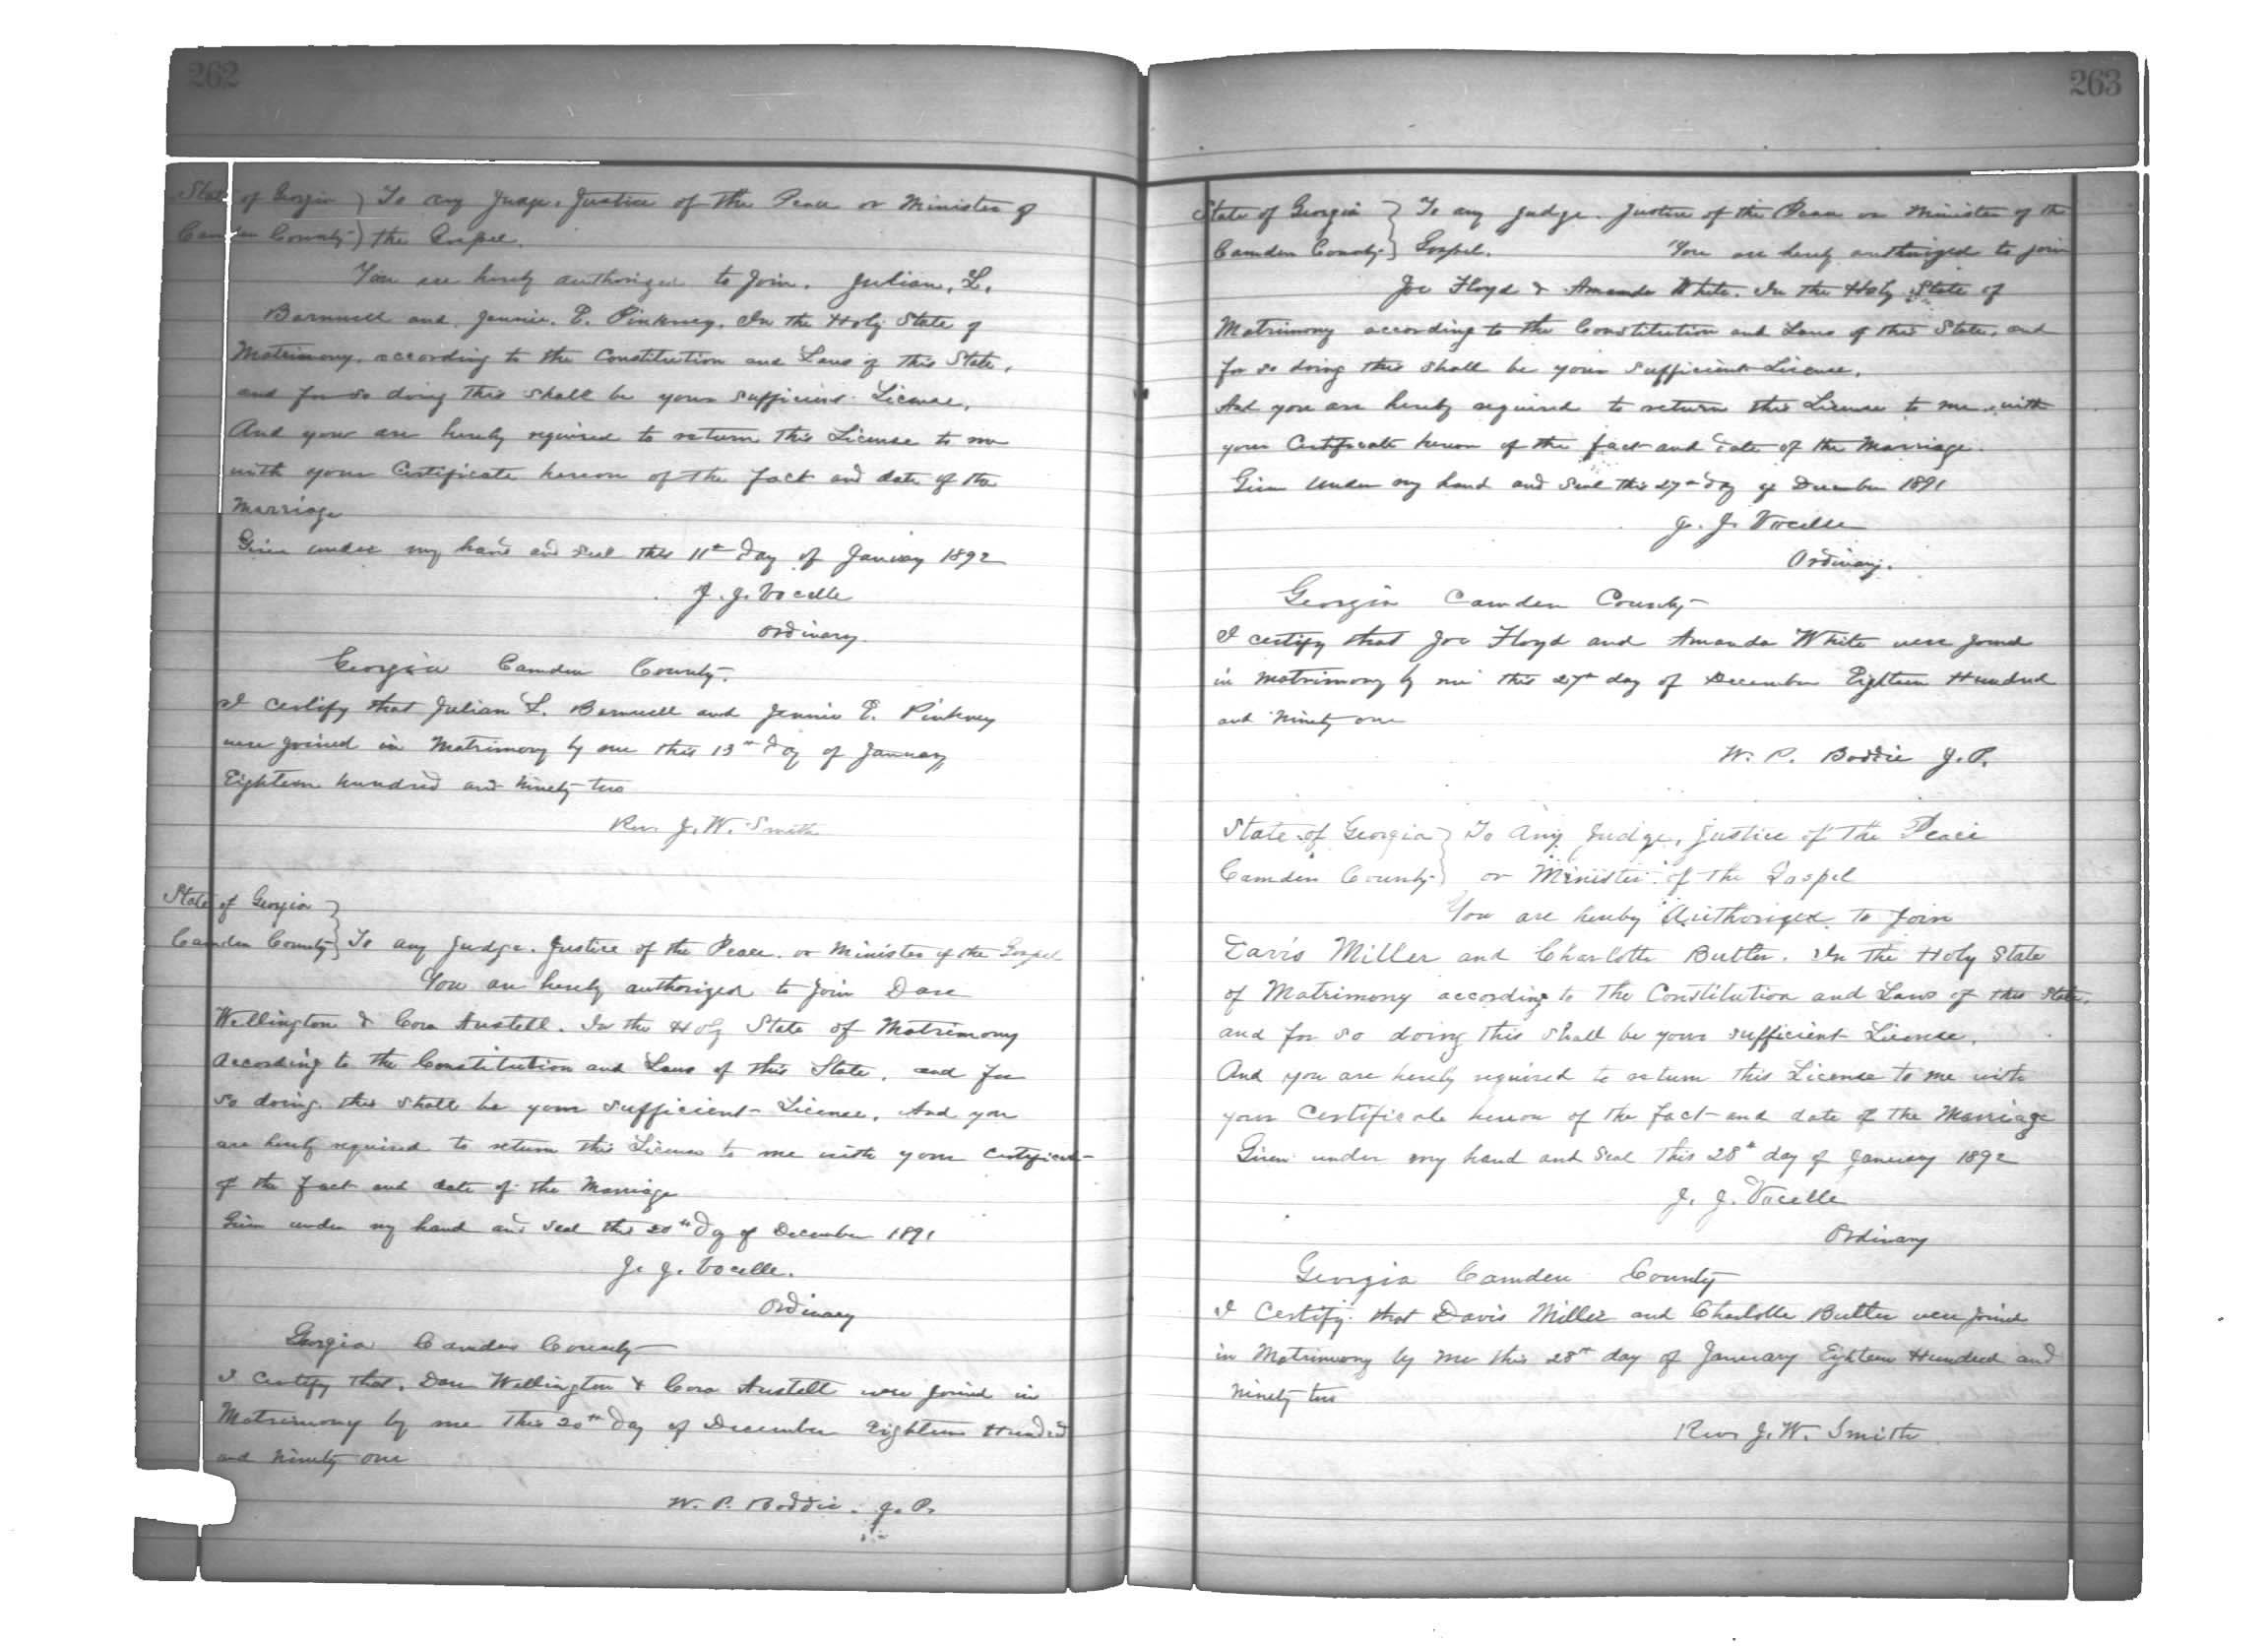 262
State of Georgia } To any Judge, Justice of the Peace or Minister of
Camden County } the Gospel.
You are hereby authorized to Join. Julian. L.
Barnwell and. Jennie. E. Pinkney. In the Holy State of
Matrimony, according to the Constitution and Laws of this State,
and for so doing this shall be your sufficient License.
And your are hereby required to return this License to me
with your Certificate hereon of the fact and date of the
Marriage
Given under my hand and seal this 11th day of January 1892
J. J. Vocelle
Ordinary.
Georgia Camden County.
I certify that Julian L. Barnwell and Jennie E. Pinkney
were joined in Matrimony by me this 13th day of January
Eighteen hundred and ninety two
Rev. J. W. Smith
State of Georgia }
Camden County } To any Judge. Justice of the Peace. or Minister of the Gospel
You are hereby authorized to join Dave
Wellington & Cora Austell. In the Holy State of Matrimony
According to the Constitution and Laws of this State. and for
so doing. this shall be your sufficient License. And you
are hereby required to return this License to me with your Certificate
of the fact and date of the Marriage
Given under my hand and seal this 20th day of December 1891
J. J. Vocelle.
Ordinary
Georgia Camden County
I certify that. Dave Wellington & Cora Austell were joined in
Matrimony by me this 20th day of December Eighteen Hundred
and ninety one
W. P. Boddie. J. P.
263
State of Georgia } To any Judge. Justice of the Peace or Minister of the
Camden County } Gospel. You are hereby authorized to join
Joe Floyd & Amanda White. In the Holy State of
Matrimony according to the Constitution and Laws of this State. and
for so doing this shall be your sufficient License.
And you are hereby required to return this License to me with
your Certificate hereon of the fact and date of the Marriage.
Given under my hand and seal this 27th day of December 1891
J. J. Vocelle
Ordinary.
Georgia Camden County
I certify that Joe Floyd and Amanda White were joined
in matrimony by me this 27th day of December Eighteen Hundred
and ninety one
W. P. Boddie J. P.
State of Georgia } To Any Judge, Justice of the Peace
Camden County } or Minister of the Gospel
You are hereby Authorized to join
Davis Miller and Charlotte Butler. In the Holy State
of Matrimony according to the Constitution and Laws of this State.
and for so doing this shall be your sufficient License.
And you are hereby required to return this License to me with
your Certificate hereon of the fact and date of the Marriage
Given under my hand and seal this 28th day of January 1892
J. J. Vocelle
Ordinary
Georgia Camden County
I Certify that Davis Miller and Charlotte Butler were joined
in Matrimony by me this 28th day of January Eighteen Hundred and
ninety two
Rev J. W. Smith